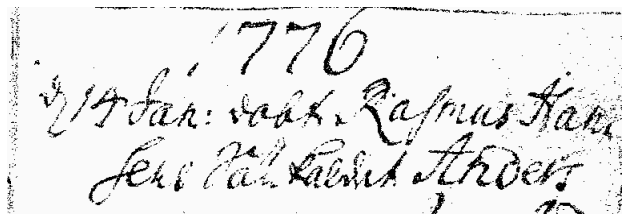 1776
D 14 Jan: døbt Rasmus Han
sens Søn kaldet Anders